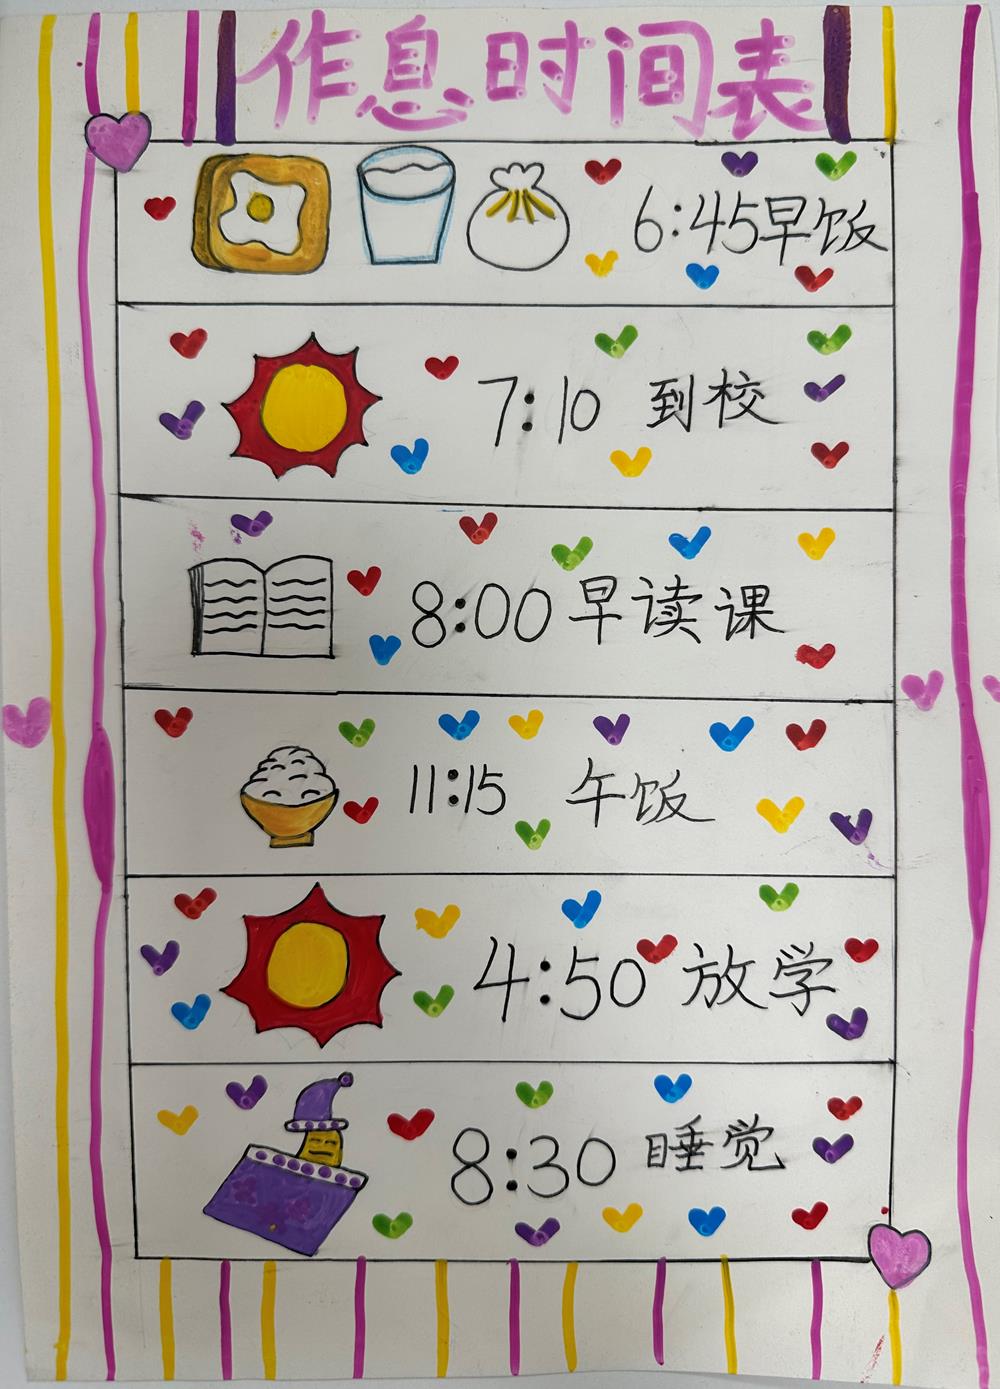 作息时间表
6:45早饭
7:10 到校
8:00早读课
11:15 午饭
4:50 放学
8:30 睡觉